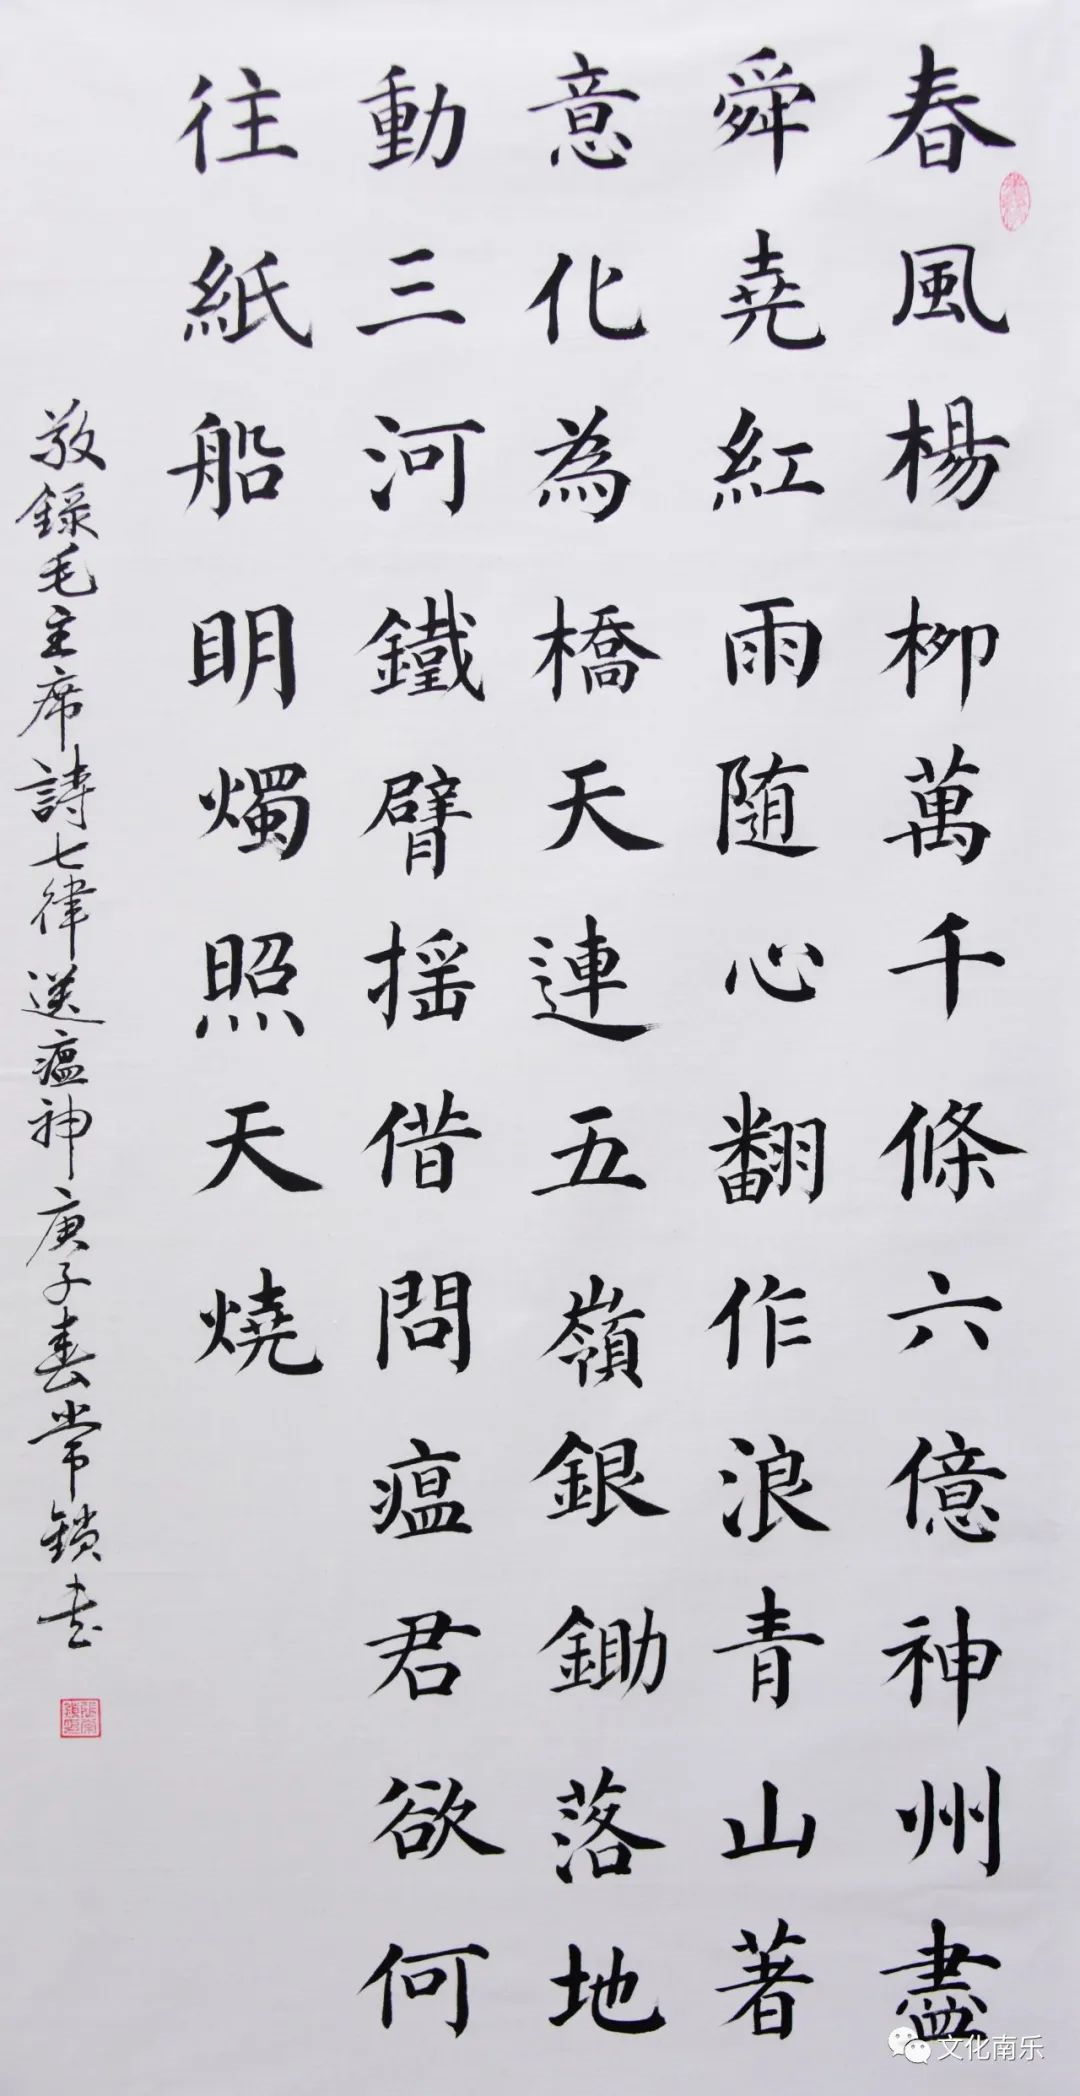 春風楊柳萬千條六億神州盡
舜堯紅雨随心翻作浪青山著
意化為橋天連五嶺銀鋤落地
動三河鐵臂摇借問瘟君欲何
往紙船眀燭照天燒
敬録毛主席詩七律送瘟神庚子春常鎖书
文化南乐